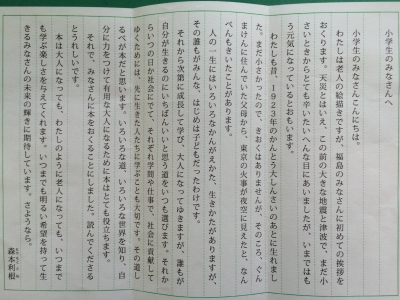 小学生のみなさんへ
小学生のみなさんこんにちは。
わたしは老人の絵描きですが、福島のみなさんに初めての挨拶を
おくります。天災とはいえ、この前の大きな地震と津波で、まだ小
さいときからとても辛いたいへんな日にあいましたが、いまではも
う元気になっているとおもいます。
わたしも昔、1923年のかんとう大しんさいのあとに生れまし
た。まだ小さかったので、きおくはありませんが、そのころ、ぐん
まけんに住んでいた父母から、東京の火事が夜空に見えたと、なん
べんもきいたことがあります。
人の一生にはいろいろなかんがえかた、生きかたがありますが、
その誰もがみんな、はじめは子どもだったわけです。
それから次第に成長して学び、大人になってゆきますが、誰もが
自分が生きるのにいちばんいいと思う道をいつも選びます。それか
らいつの日か社会にでて、それぞれ学問や仕事で、社会に貢献して
ゆくためには、先に生きた人たちに学ぶことも大切です。その道し
るべが本だと思います。いろいろな道、いろいろな世界を知り、自
分に力をつけて有用な大人になるために本はとても役立ちます。
それで、みなさんに本をおくることにしました。読んでくださる
とうれしいです。
本は大人になっても、わたしのように老人になっても、いつまで
も学ぶ楽しさを与えてくれます。いつまでも明るい希望を持って生
きるみなさんの未来の輝きに期待しています。さようなら。
森本利根